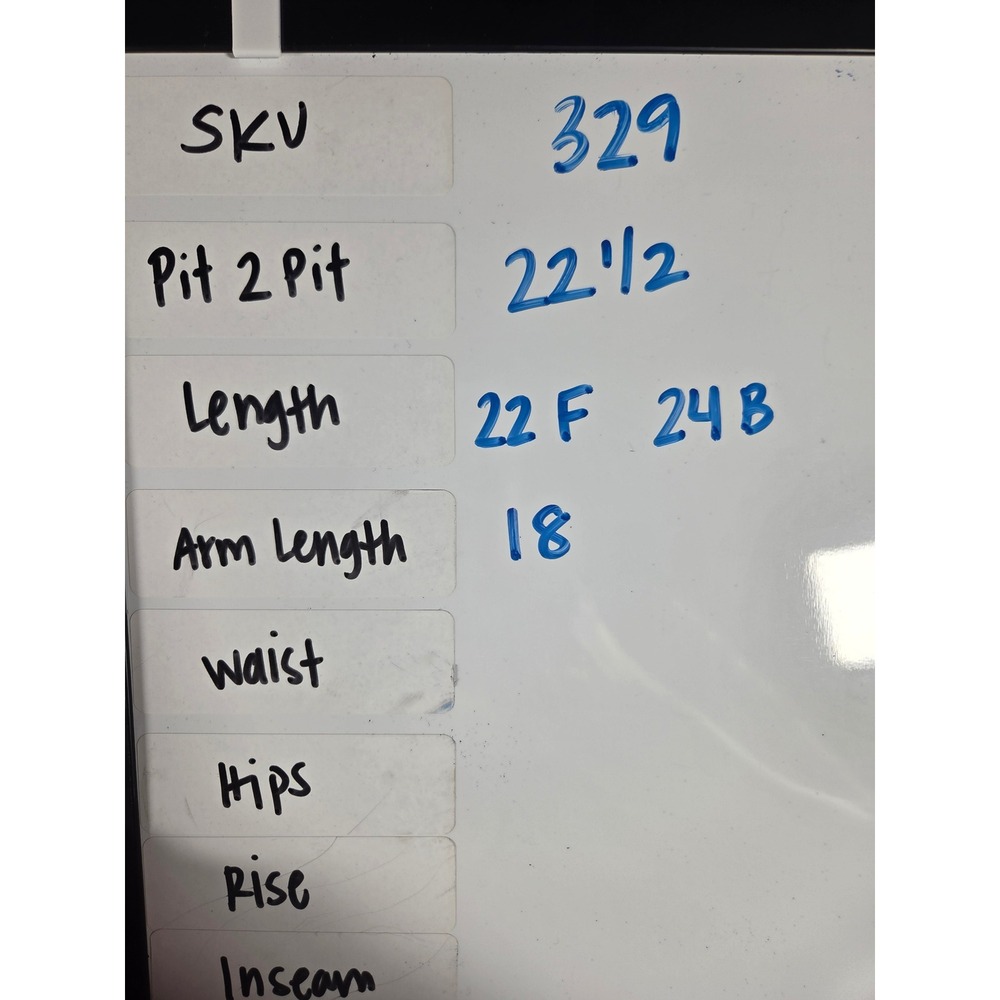 SKU 329
Pit 2 Pit 22 1/2
Length 22 F 24 B
Arm Length 18
Waist
Hips
Rise
Inseam